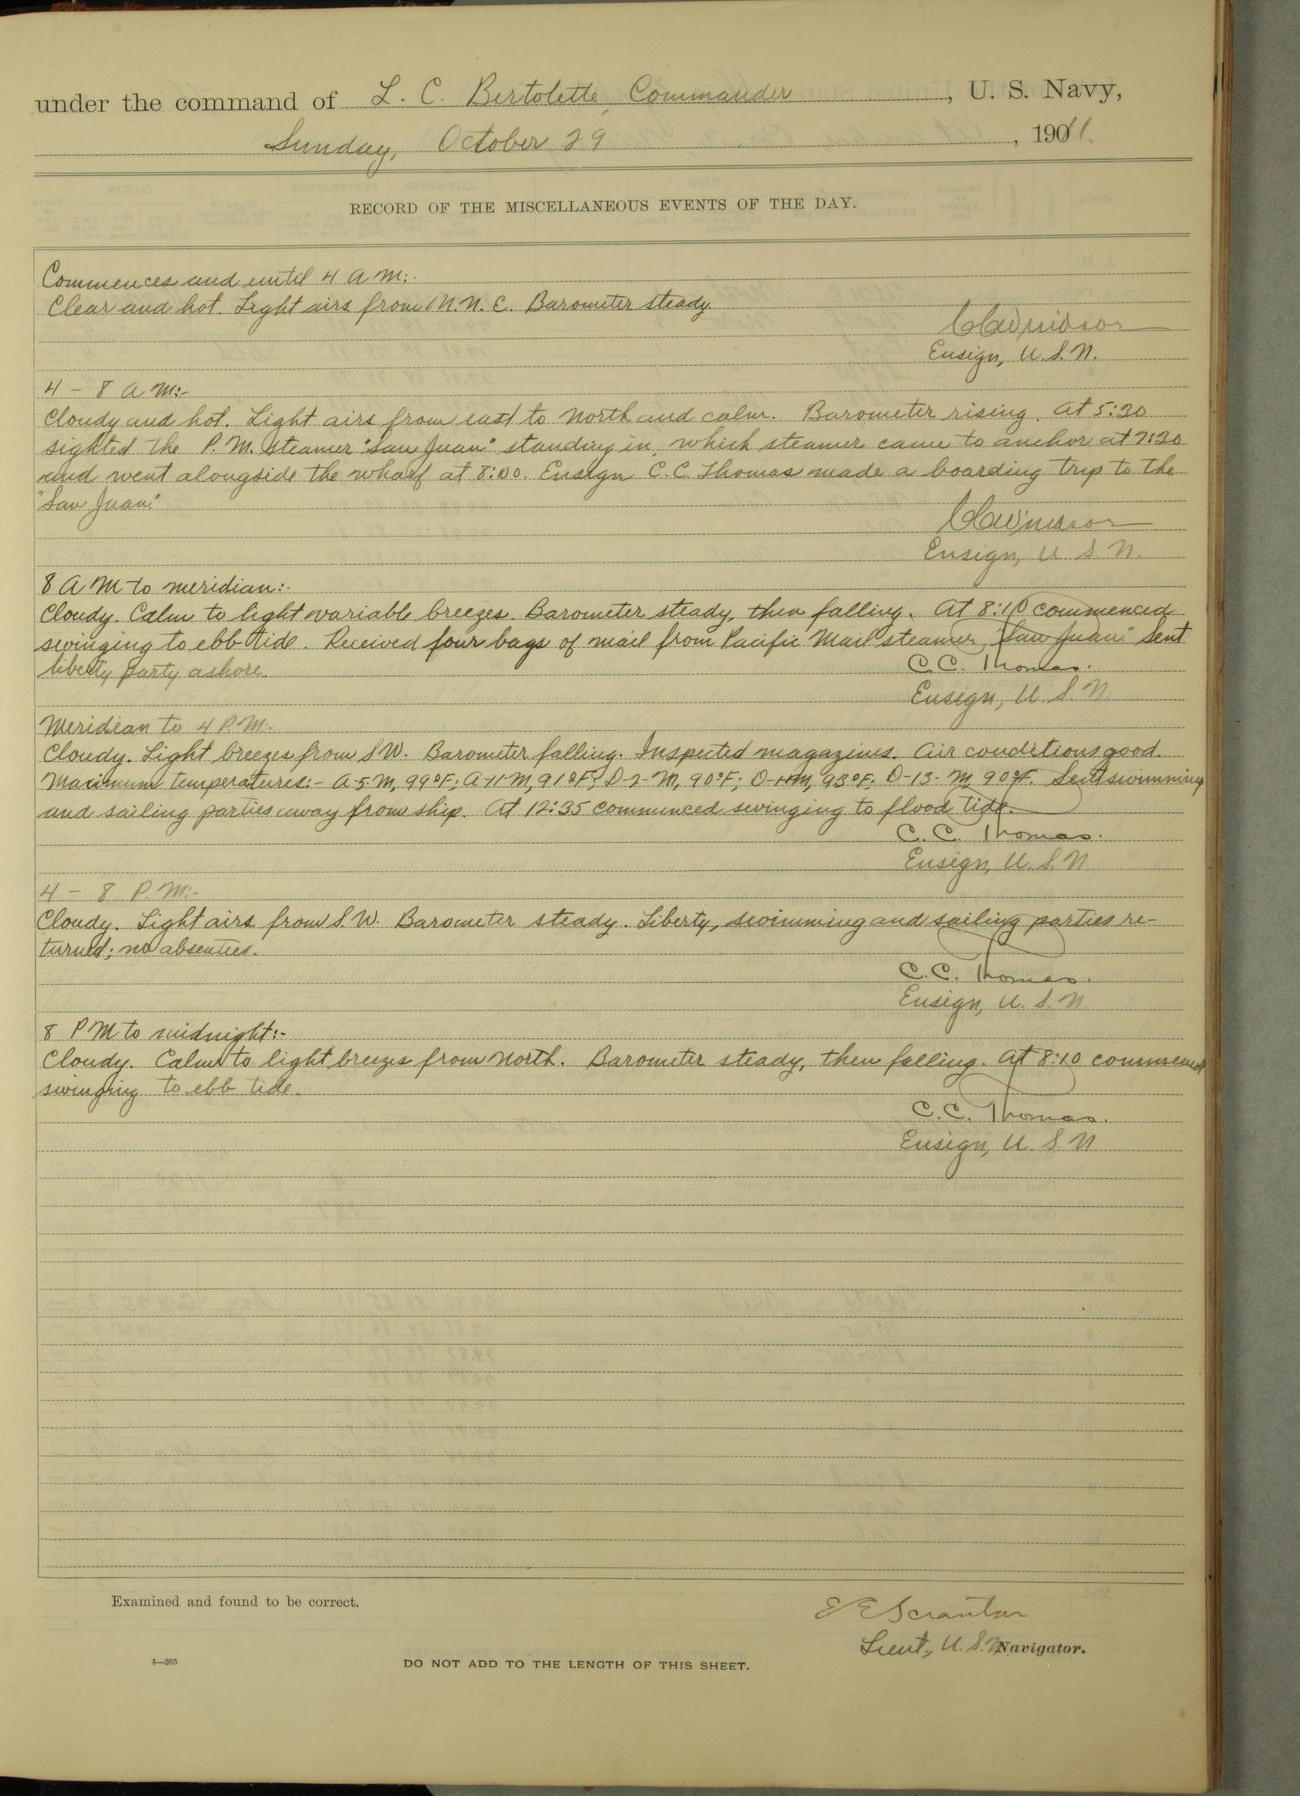 under the command of L. C. Bertolette, Commander, U. S. Navy,
Sunday, October 29, 1911.
RECORD OF THE MISCELLANEOUS EVENTS OF THE DAY.
Commences and until 4 A M:-
Clear and hot. Light airs from N. N. E. Barometer steady.
Ensign, U. S. N.
4 - 8 A M:-
Cloudy and hot. Light airs from east to North and calm. Barometer rising. At 5:30
sighted the P. M. steamer "San Juan" standing in, which steamer came to anchor at 7:30
and went alongside the wharf at 8:00. Ensign C. C. Thomas made a boarding trip to the
"San Juan."
Ensign, U S N.
8 A M to meridian:-
Cloudy. Calm to light variable breezes. Barometer steady, then falling. At 8:10 commenced
swinging to ebb tide. Received four bags of mail from Pacific Mail steamer "San Juan." Sent
liberty party ashore.
C. C. Thomas.
Ensign, U. S. N.
Meridian to 4 P M:-
Cloudy. Light breezes from S W. Barometer falling. Inspected magazines. Air conditions good.
Maximum temperatures:- A-5-M, 99°F; A-11-M, 91°F; D-7-M, 90°F; D-1-M, 93°F; D-13-M, 90°F. Sent swimming
and sailing parties away from ship. At 12:35 commenced swinging to flood tide.
C. C. Thomas.
Ensign, U. S. N.
4 - 8 P. M:-
Cloudy. Light airs from S. W. Barometer steady. Liberty, swimming and sailing parties re-
turned; no absentees.
C. C. Thomas.
Ensign, U. S. N
8 P M to midnight:-
Cloudy. Calm to light breezes from North. Barometer steady, then falling. At 8:10 commenced
swinging to ebb tide.
C. C. Thomas.
Ensign, U. S. N
Examined and found to be correct.
E E Scranton
Lieut, U. S. N. Navigator.
4—265
DO NOT ADD TO THE LENGTH OF THIS SHEET.